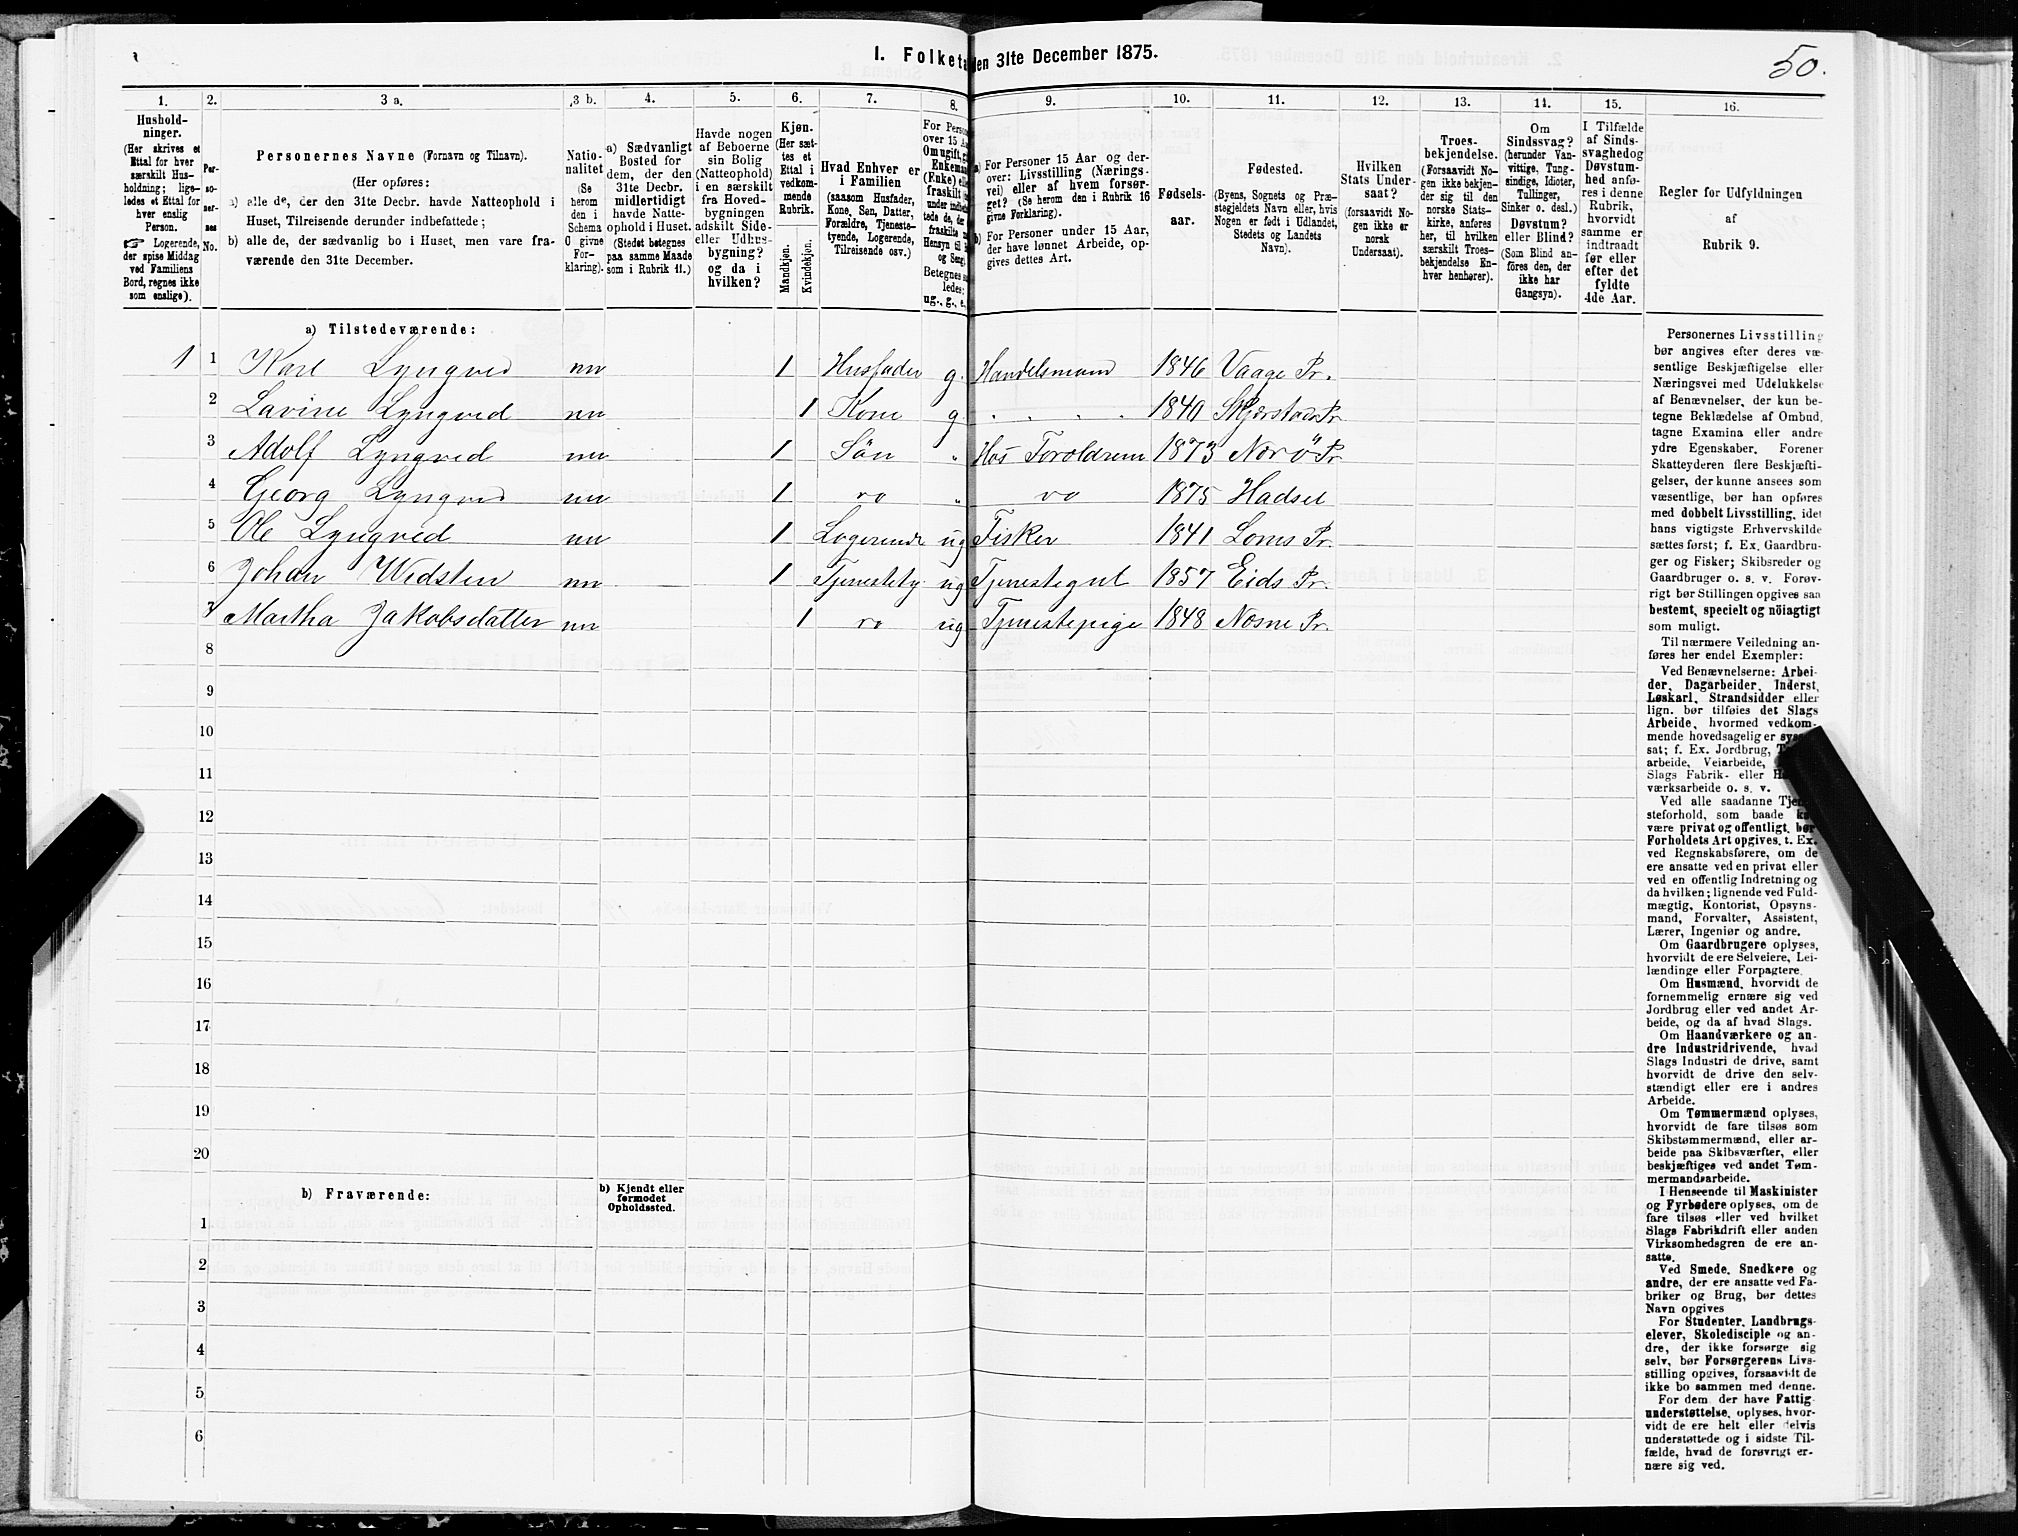 I. Folketa
den 31te December 1875.
50.
1.
2.
3 a.
3 b.
4.
5.
6.
7.
8.
9.
10.
11.
12.
13.
14.
15.
16.
Hushold-
ninger.
(Her skrives et
Ettal for hver
særskilt Hus-
holdning; lige-
ledes et Ettal for
hver enslig
Person.
☞ Logerende,
der spise Middag
ved Familiens
Bord, regnes ikke
som enslige).
Per-
so-
ner-
nes
No.
Personernes Navne (Fornavn og Tilnavn).
(Her opføres:
a) alle de, der den 31te Decbr. havde Natteophold i
Huset, Tilreisende derunder indbefattede;
b) alle de, der sædvanlig bo i Huset, men vare fra-
værende den 31te December.
Natio-
nalitet
(Se
herom
den i
Schema
O givne
For-
klaring).
a) Sædvanligt
Bosted for
dem, der den
31te Decbr.
midlertidigt
havde Natte-
ophold i Huset.
(Stedet betegnes
paa samme Maade
som i Rubrik 11.)
Havde nogen
af Beboerne
sin Bolig
(Natteophold)
i en særskilt
fra Hoved-
bygningen
adskilt Side-
eller Udhus-
bygning?
og da i
hvilken?
Kjøn.
(Her sæt-
tes et
Ettal i
vedkom-
mende
Rubrik.
Mandkjøn.
Kvindekjøn.
Hvad Enhver er
i Familien
(saasom Husfader,
Kone, Søn, Datter,
Forældre, Tjeneste-
tyende, Logerende,
Tilreisende osv.)
For Person
over 15 Aa
Om ugift, g
Enkeman
(Enke) elle
fraskilt
under indbe
tede de, de
fraskilte
Hensyn til
og Seng
Betegnes s
ledes:
ug., g., e.,
a) For Personer 15 Aar og der-
over: Livsstilling (Nærings-
vei) eller af hvem forsør-
get? (Se herom den i Rubrik 16
givne Forklaring).
b) For Personer under 15 Aar,
der have lønnet Arbeide, op-
gives dettes Art.
Fødsels-
aar.
Fødested.
(Byens, Sognets og Præ-
stegjeldets Navn eller, hvis
Nogen er født i Udlandet,
Stedets og Landets
Navn).
Hvilken
Stats Under-
saat?
(forsaavidt No-
gen ikke er
norsk
Undersaat).
Troes-
bekjendelse.
(Forsaavidt No-
gen ikke bekjen-
der sig til den
norske Stats-
kirke, anføres
her, til hvilken
særskilt Troes-
bekjendelse En-
hver henhører).
Om
Sindssvag?
(herunder Van-
vittige, Tung-
sindige, Idioter,
Tullinger,
Sinker o. desl.)
Døvstum?
eller Blind?
(Som Blind an-
føres den, der
ikke har
Gangsyn).
I Tilfælde
af Sinds-
svaghed og
Døvstum-
hed anfø-
res i denne
Rubrik,
hvorvidt
samme er
indtraadt
før eller
efter det
fyldte
4de Aar.
Regler for Udfyldningen
af
Rubrik 9.
a) Tilstedeværende:
1 1 Karl Lyngved nn 1 Husfader g. Handelsmand 1846 Vaage Pr.
2 Lavine Lyngved nn 1 Kone g. . . . . 1840 Skjerstad Pr
3 Adolf Lyngved nn 1 Sön " Hos Foroldrem 1873 Norö Pr
4 Georg Lyngved nn 1 do " do 1875 Hadsel
5 Ole Lyngved nn 1 Logerende ug Fisker 1841 Loms Pr.
6 Johan Wedsten nn 1 Tjenestety ug Tjenestegut 1857 Eids Pr.
7 Martha Jakobsdatter nn 1 do ug Tjenestepige 1848 Nosne Pr.
8
9
10
11
12
13
14
15
16
17
18
19
20
b) Fraværende:
b) Kjendt eller
formodet
Opholdssted.
1
2
3
4
5
6
Personernes Livsstilling
bør angives efter deres væ-
sentlige Beskjæftigelse eller
Næringsvei med Udelukkelse
af Benævnelser, der kun be-
tegne Beklædelse af Ombud,
tagne Examina eller andre
ydre Egenskaber. Forener
Skatteyderen flere Beskjæfti-
gelser, der kunne ansees som
væsentlige, bør han opføres
med dobbelt Livsstilling, idet
hans vigtigste Erhvervskilde
sættes først; f. Ex. Gaardbru-
ger og Fisker; Skibsreder og
Gaardbruger o. s. v. Forøv-
rigt bør Stillingen opgives saa
bestemt, specielt og nöiagtigt
som muligt.
Til nærmere Veiledning an-
føres her endel Exempler:
Ved Benævnelserne: Arbei-
der, Dagarbeider, Inderst,
Løskarl, Strandsidder eller
lign. bør tilføies det Slags
Arbeide, hvormed vedkom-
mende hovedsagelig er syssel-
sat; f. Ex. Jordbrug, T
arbeide, Veiarbeide,
Slags Fabrik- eller H
værksarbeide o. s. v.
Ved alle saadanne Tjene-
steforhold, som baade k
være privat og offentligt, bør
Forholdets Art opgives, t. Ex.
ved Regnskabsførere, om de
ere ansatte ved en privat eller
ved en offentlig Indretning og
da hvilken; lignende ved Fuld-
mægtig, Kontorist, Opsyns-
mand, Forvalter, Assistent,
Lærer, Ingeniør og andre.
Om Gaardbrugere oplyses,
hvorvidt de ere Selveiere, Lei-
lændinge eller Forpagtere.
Om Husmænd, hvorvidt de
fornemmelig ernære sig ved
Jordbrug eller ved andet Ar-
beide, og da af hvad Slags.
Om Haandværkere og an-
dre Industridrivende, hvad
Slags Industri de drive, samt
hvorvidt de drive den selv-
stændigt eller ere i andres
Arbeide.
Om Tømmermænd oplyses,
hvorvidt de fare tilsøs som
Skibstømmermænd, eller ar-
beide paa Skibsværfter, eller
beskjæftiges ved andet Tøm-
mermandsarbeide.
I Henseende til Maskinister
og Fyrbødere oplyses, om de
fare tilsøs eller ved hvilket
Slags Fabrikdrift eller anden
Virksomhedsgren de ere an-
satte.
Ved Smede, Snedkere og
andre, der ere ansatte ved Fa-
briker og Brug, bør dettes
Navn opgives
For Studenter, Landbrugs-
elever, Skoledisciple og an-
dre, der ikke forsørge sig
selv, bør Forsørgerens Livs-
stilling opgives, forsaavidt de
ikke bo sammen med denne.
For dem der have Fattig-
understøttelse, oplyses, hvor-
vidt de ere helt eller delvis
understøttede og i sidste Til-
fælde, hvad de forøvrigt er-
nære sig ved.